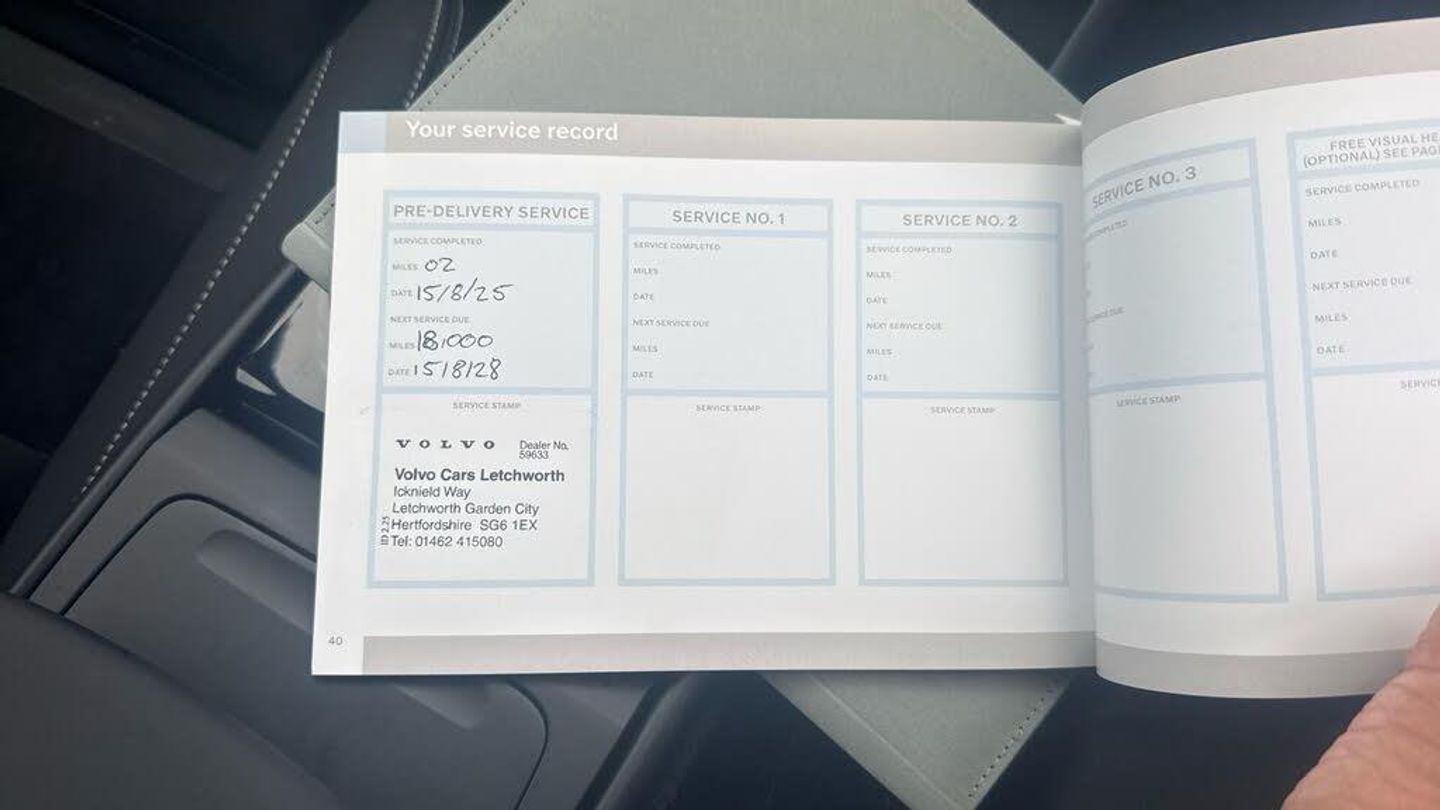 Your service record
PRE-DELIVERY SERVICE
SERVICE COMPLETED
MILES 02
DATE 15/8/25
NEXT SERVICE DUE
MILES 18,000
DATE 15/8/28
SERVICE STAMP
VOLVO Dealer No.
59633
Volvo Cars Letchworth
Icknield Way
Letchworth Garden City
Hertfordshire SG6 1EX
Tel: 01462 415080
ID 2.25
SERVICE NO. 1
SERVICE COMPLETED
MILES
DATE
NEXT SERVICE DUE
MILES
DATE
SERVICE STAMP
SERVICE NO. 2
SERVICE COMPLETED
MILES
DATE
NEXT SERVICE DUE
MILES
DATE
SERVICE STAMP
SERVICE NO. 3
SERVICE STAMP
FREE VISUAL
(OPTIONAL) SEE
SERVICE COMPLETED
MILES
DATE
NEXT SERVICE DUE
MILES
DATE
40